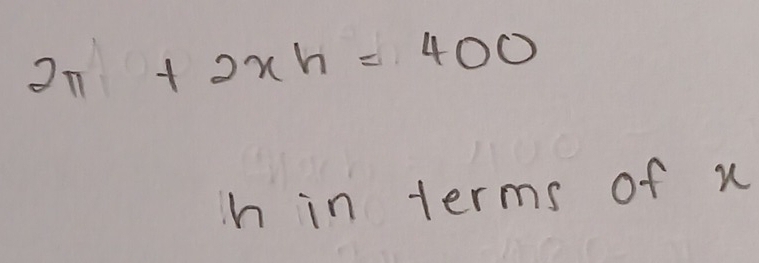 2π + 2xh = 400
h in terms of x